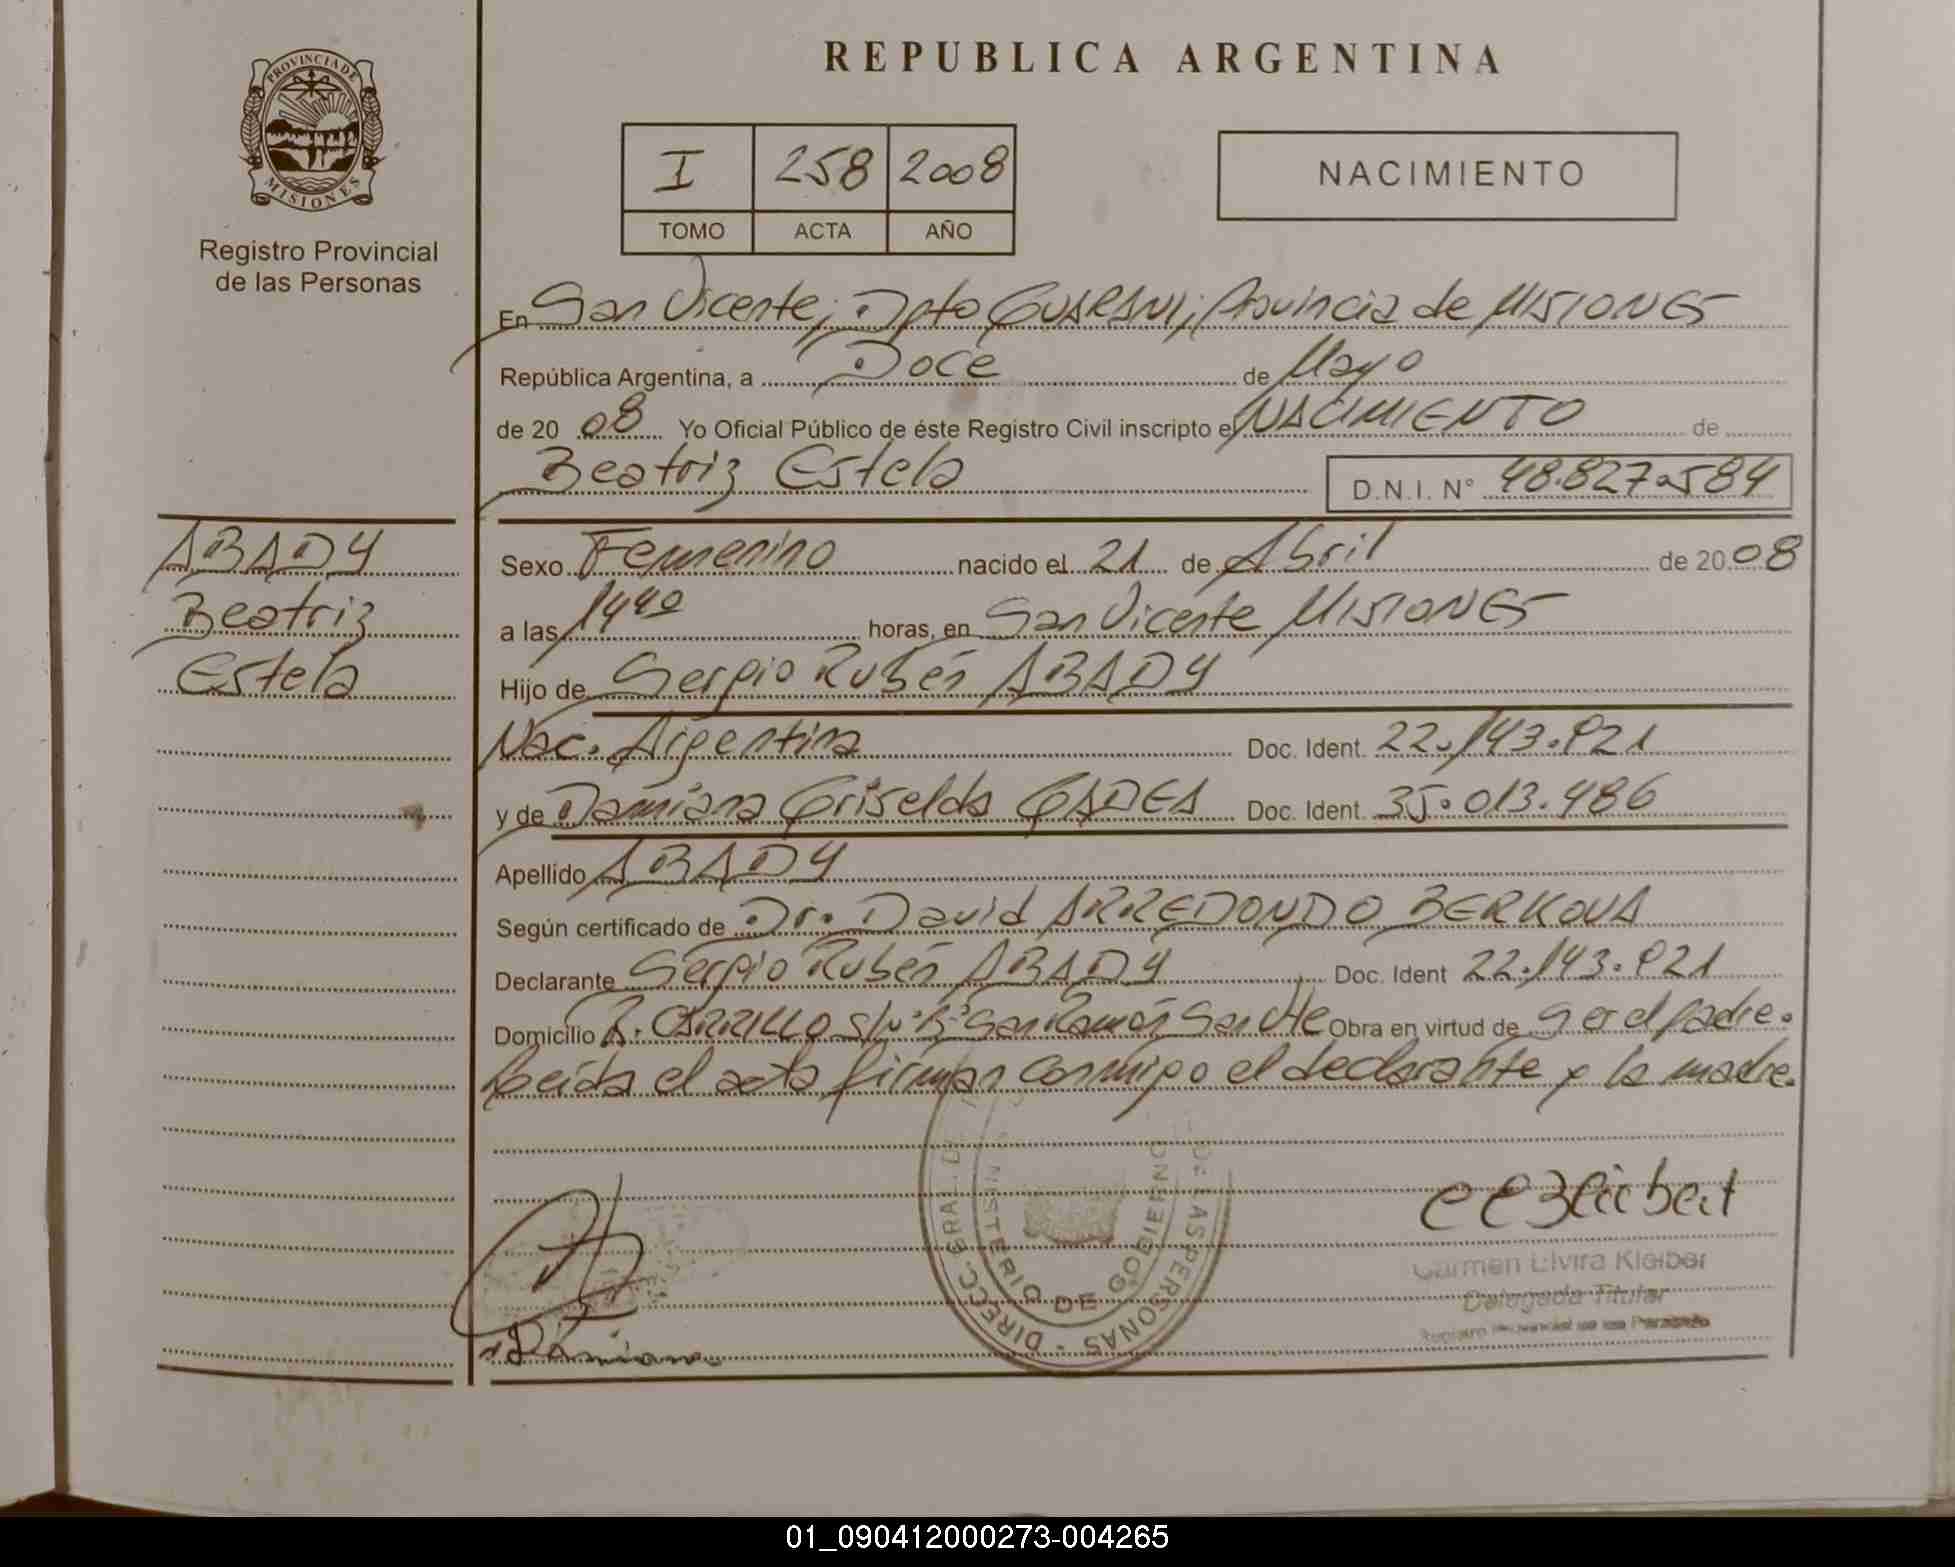 REPUBLICA ARGENTINA
PROVINCIA DE
MISIONES
Registro Provincial
de las Personas
I 258 2008
TOMO ACTA AÑO
NACIMIENTO
En San Vicente; Dpto GUARANI; Provincia de MISIONES
República Argentina, a Doce de Mayo
de 20 08 Yo Oficial Público de éste Registro Civil inscripto el NACIMIENTO de
Beatriz Estela D.N.I. N° 48.827.584
ABADY
Beatriz
Estela
Sexo Femenino nacido el 21 de Abril de 20 08
a las 14 40 horas, en San Vicente MISIONES
Hijo de Sergio Rubén ABADY
Nac. Argentina Doc. Ident. 22.143.821
y de Damiana Griselda GADEA Doc. Ident. 35.013.486
Apellido ABADY
Según certificado de Dr. David ARREDONDO BERKOVA
Declarante Sergio Rubén ABADY Doc. Ident 22.143.821
Domicilio R. CARRILLO S/N° B° San Ramón San Vte Obra en virtud de Ser el padre.
Leída el acta firman conmigo el declarante y la madre.
DIRECC. GRAL. DE LAS PERSONAS
MINISTERIO DE GOBIERNO
Damiana
Carmen Elvira Kleiber
Delegada Titular
Registro Provincial de las Personas
01_090412000273-004265